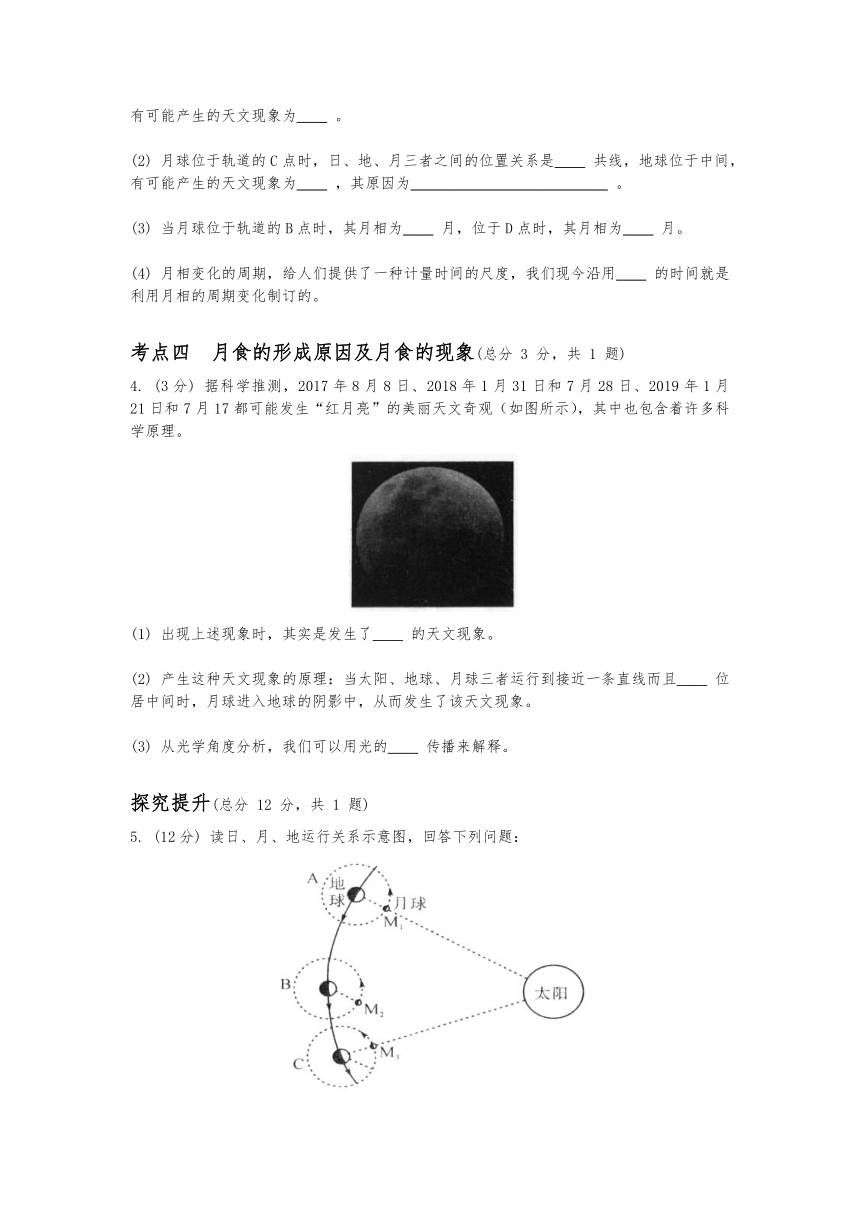 有可能产生的天文现象为____ 。
(2) 月球位于轨道的C点时，日、地、月三者之间的位置关系是____ 共线，地球位于中间，
有可能产生的天文现象为____ ，其原因为__________________________ 。
(3) 当月球位于轨道的B点时，其月相为____ 月，位于D点时，其月相为____ 月。
(4) 月相变化的周期，给人们提供了一种计量时间的尺度，我们现今沿用____ 的时间就是
利用月相的周期变化制订的。
考点四　月食的形成原因及月食的现象(总分 3 分，共 1 题)
4. (3分) 据科学推测，2017年8月8日、2018年1月31日和7月28日、2019年1月
21日和7月17都可能发生“红月亮”的美丽天文奇观（如图所示），其中也包含着许多科
学原理。
(1) 出现上述现象时，其实是发生了____ 的天文现象。
(2) 产生这种天文现象的原理：当太阳、地球、月球三者运行到接近一条直线而且____ 位
居中间时，月球进入地球的阴影中，从而发生了该天文现象。
(3) 从光学角度分析，我们可以用光的____ 传播来解释。
探究提升(总分 12 分，共 1 题)
5. (12分) 读日、月、地运行关系示意图，回答下列问题：
A
地
球
月球
M₁
B
M₂
太阳
C
M₃